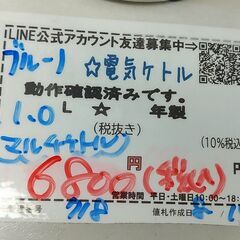 LINE公式アカウント友達募集中⇒
ブルーノ
☆電気ケトル
動作確認済みです。
1.0L ☆ 年製
(税抜き)
(10%税込
マルチケトル)
6800円 円
営業時間 平日・土曜日10:00~18:
番号 値札作成日